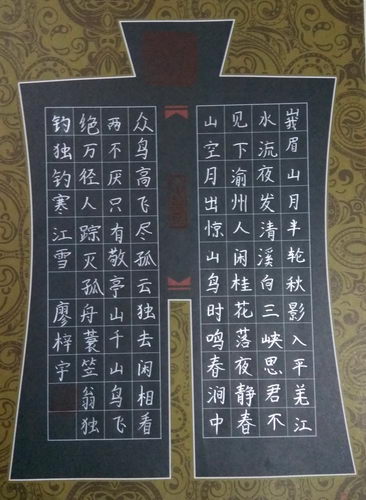 峩眉山月半轮秋影入平羌江
水流夜发清溪向三峡思君不
见下渝州人闲桂花落夜静春
山空月出惊山鸟时鸣春涧中
众鸟高飞尽孤云独去闲相看
两不厌只有敬亭山千山鸟飞
绝万径人踪灭孤舟蓑笠翁独
钓独钓寒江雪 廖梓宇